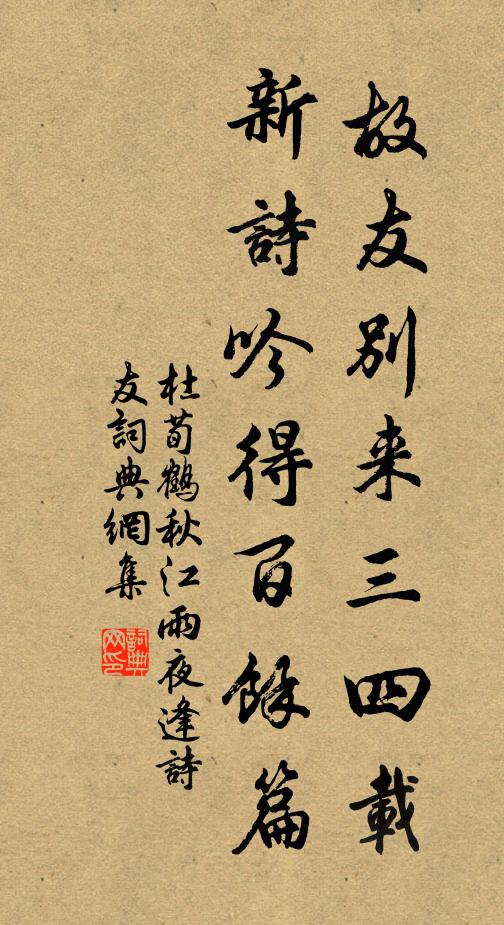 故友别来三四載
新詩吟得百餘篇
杜荀鶴秋江雨夜逢詩
友詞典網集
詞典
网印